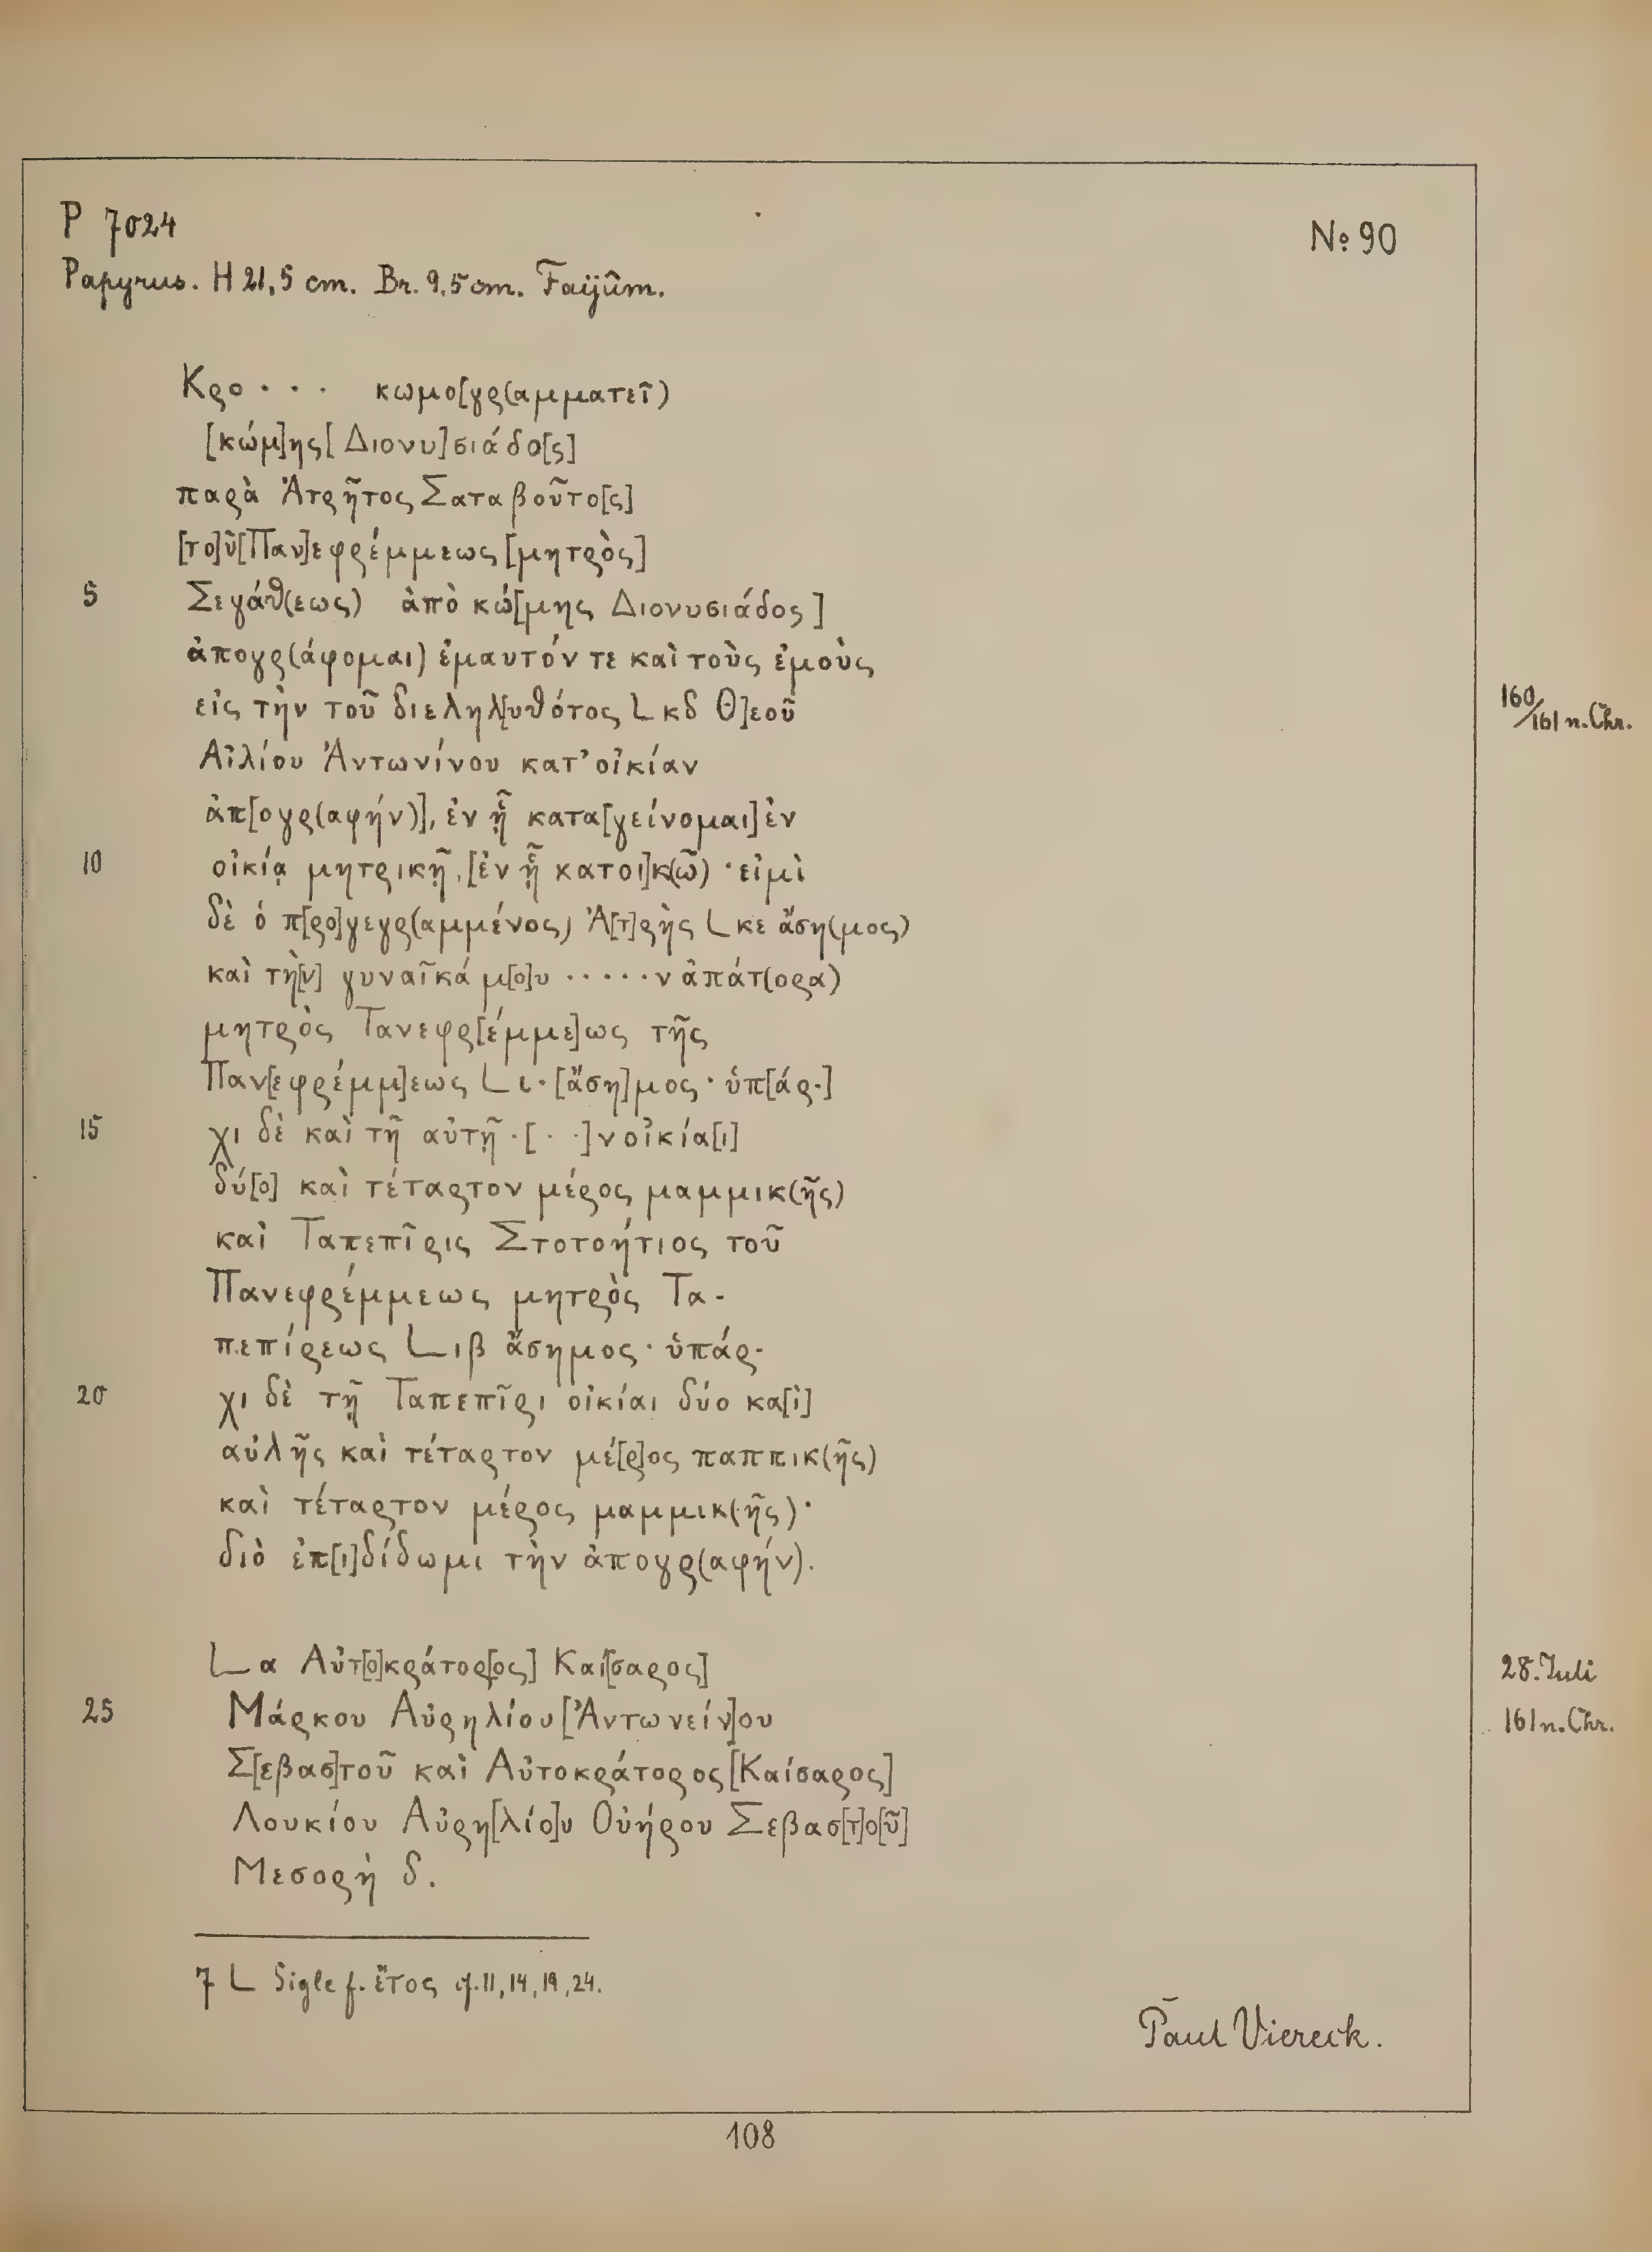 P 7024
No 90
Papyrus. H 21,5 cm. Br. 9,5 cm. Faijûm.
Κρο · · · κωμο[γρ(αμματεῖ)
[κώμ]ης[ Διονυ]σιάδο[ς]
παρὰ Ἁτρῆτος Σαταβοῦτο[ς]
[το]ῦ[Παν]εφρέμμεως [μητρὸς]
5 Σεγάθ(εως) ἀπὸ κώ[μης Διονυσιάδος]
ἀπογρ(άφομαι) ἐμαυτόν τε καὶ τοὺς ἐμοὺς
εἰς τὴν τοῦ διεληλ[υθότος L κδ Θ]εοῦ
160/161 n. Chr.
Αἰλίου Ἀντωνίνου κατ' οἰκίαν
ἀπ[ογρ(αφήν)], ἐν ᾗ κατα[γείνομαι] ἐν
10 οἰκίᾳ μητρικῇ, [ἐν ᾗ κατοι]κ(ῶ) · εἰμὶ
δὲ ὁ π[ρο]γεγρ(αμμένος) Ἁ[τ]ρὴς L κε ἄση(μος)
καὶ τὴ[ν] γυναῖκά μ[ο]υ · · · · · ν ἀπάτ(ορα)
μητρὸς Τανεφρ[έμμε]ως τῆς
Παν[εφρέμμ]εως L ι · [ἄση]μος · ὑπ[άρ-]
15 χι δὲ καὶ τῇ αὐτῇ · [ · · ] ν οἰκία[ι]
δύ[ο] καὶ τέταρτον μέρος μαμμικ(ῆς)
καὶ Ταπεπῖρις Στοτοήτιος τοῦ
Πανεφρέμμεως μητρὸς Τα-
πεπίρεως L ιβ ἄσημος · ὑπάρ-
20 χι δὲ τῇ Ταπεπῖρι οἰκίαι δύο κα[ὶ]
αὐλῆς καὶ τέταρτον μέ[ρ]ος παππικ(ῆς)
καὶ τέταρτον μέρος μαμμικ(ῆς) ·
διὸ ἐπ[ι]δίδωμι τὴν ἀπογρ(αφήν).
L α Αὐτ[ο]κράτορ[ος] Καί[σαρος]
28. Juli
25 Μάρκου Αὐρηλίου [Ἀντωνείν]ου
161 n. Chr.
Σ[εβασ]τοῦ καὶ Αὐτοκράτορος [Καίσαρος]
Λουκίου Αὐρη[λίο]υ Οὐήρου Σεβασ[τ]ο[ῦ]
Μεσορὴ δ.
7 L Sigle f. ἔτος cf. 11, 14, 19, 24.
Paul Viereck.
108